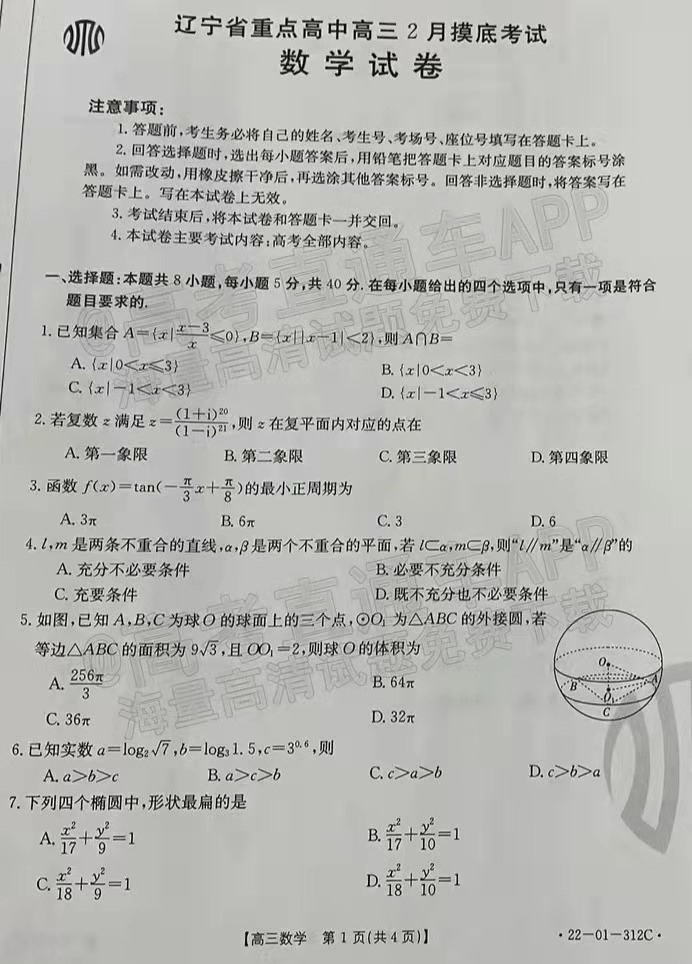 辽宁省重点高中高三2月摸底考试
数学试卷
注意事项:
1. 答题前,考生务必将自己的姓名、考生号、考场号、座位号填写在答题卡上。
2. 回答选择题时,选出每小题答案后,用铅笔把答题卡上对应题目的答案标号涂
黑。如需改动,用橡皮擦干净后,再选涂其他答案标号。回答非选择题时,将答案写在
答题卡上。写在本试卷上无效。
3. 考试结束后,将本试卷和答题卡一并交回。
4. 本试卷主要考试内容:高考全部内容。
一、选择题:本题共8小题,每小题5分,共40分.在每小题给出的四个选项中,只有一项是符合
题目要求的.
1. 已知集合 A={x|(x-3)/x≤0},B={x||x-1|<2},则 A∩B=
A. {x|0<x≤3} B. {x|0<x<3}
C. {x|-1<x<3} D. {x|-1<x≤3}
2. 若复数 z 满足 z=(1+i)²⁰/(1-i)²¹,则 z 在复平面内对应的点在
A. 第一象限 B. 第二象限 C. 第三象限 D. 第四象限
3. 函数 f(x)=tan(-π/3 x+π/8)的最小正周期为
A. 3π B. 6π C. 3 D. 6
4. l,m 是两条不重合的直线,α,β是两个不重合的平面,若 l⊂α,m⊂β,则“l∥m”是“α∥β”的
A. 充分不必要条件 B. 必要不充分条件
C. 充要条件 D. 既不充分也不必要条件
5. 如图,已知 A,B,C 为球 O 的球面上的三个点,⊙O₁ 为△ABC 的外接圆,若
等边△ABC 的面积为 9√3,且 OO₁=2,则球 O 的体积为
A. 256π/3 B. 64π
C. 36π D. 32π
O
B A
O₁
C
6. 已知实数 a=log₂√7,b=log₃1.5,c=3⁰·⁶,则
A. a>b>c B. a>c>b C. c>a>b D. c>b>a
7. 下列四个椭圆中,形状最扁的是
A. x²/17+y²/9=1 B. x²/17+y²/10=1
C. x²/18+y²/9=1 D. x²/18+y²/10=1
【高三数学 第1页(共4页)】 ·22-01-312C·
@高考直通车APP
海量高清试题免费下载
@高考直通车APP
海量高清试题免费下载